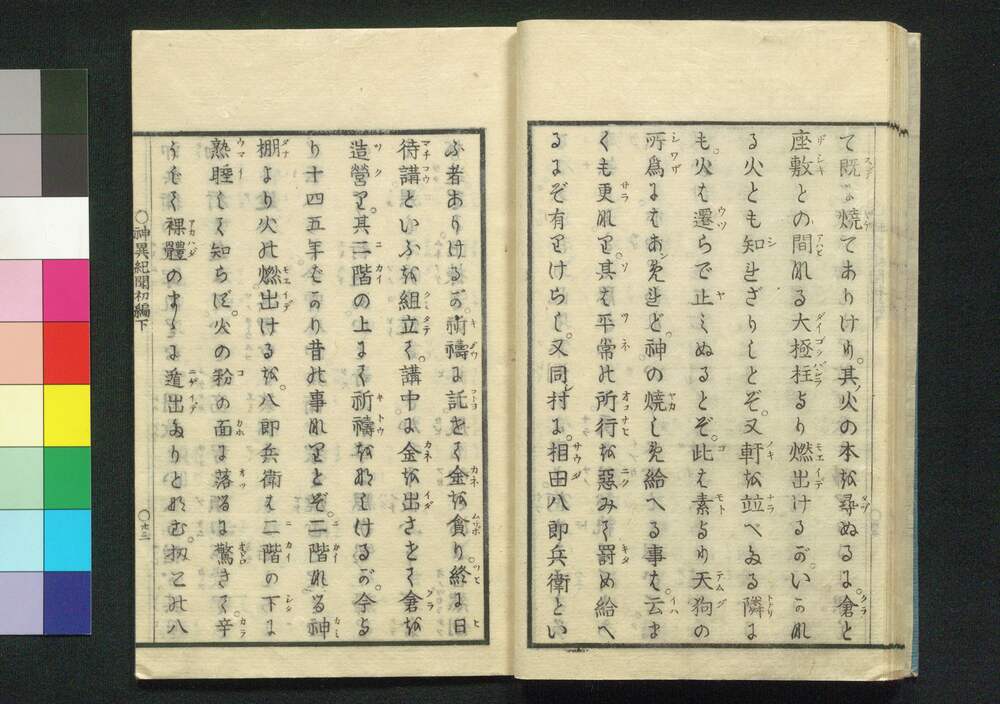 て既に焼てありけり。其火の本を尋ぬるに。倉と
座敷との間なる大極柱より燃出けるが。いかな
る火とも知れざりしとぞ。又軒を並べたる隣に
も。火は遷らで止みぬるとぞ。此は素より天狗の
所為にはあらざれど。神の焼しめ給へる事は。云ま
くも更なり。其は平常の所行を悪みて罰め給へ
るにぞ有りけらし。又同村に。相田八郎兵衛とい
ふ者ありけるが。祈禱に託せて金を貪り。終に日
待講といふを組立て。講中に金を出させて倉を
造営り。其二階の上にて祈禱をなしけるが。今よ
り十四五年ばかり昔の事なりとぞ。二階なる神
棚より火の燃出けるを。八郎兵衛は二階の下に
熟睡して知らず。火の粉の面に落るに驚きて。辛
うじて裸體のまゝに遁出たりとなむ。扨この八
〇神異紀聞初編下
〇七三